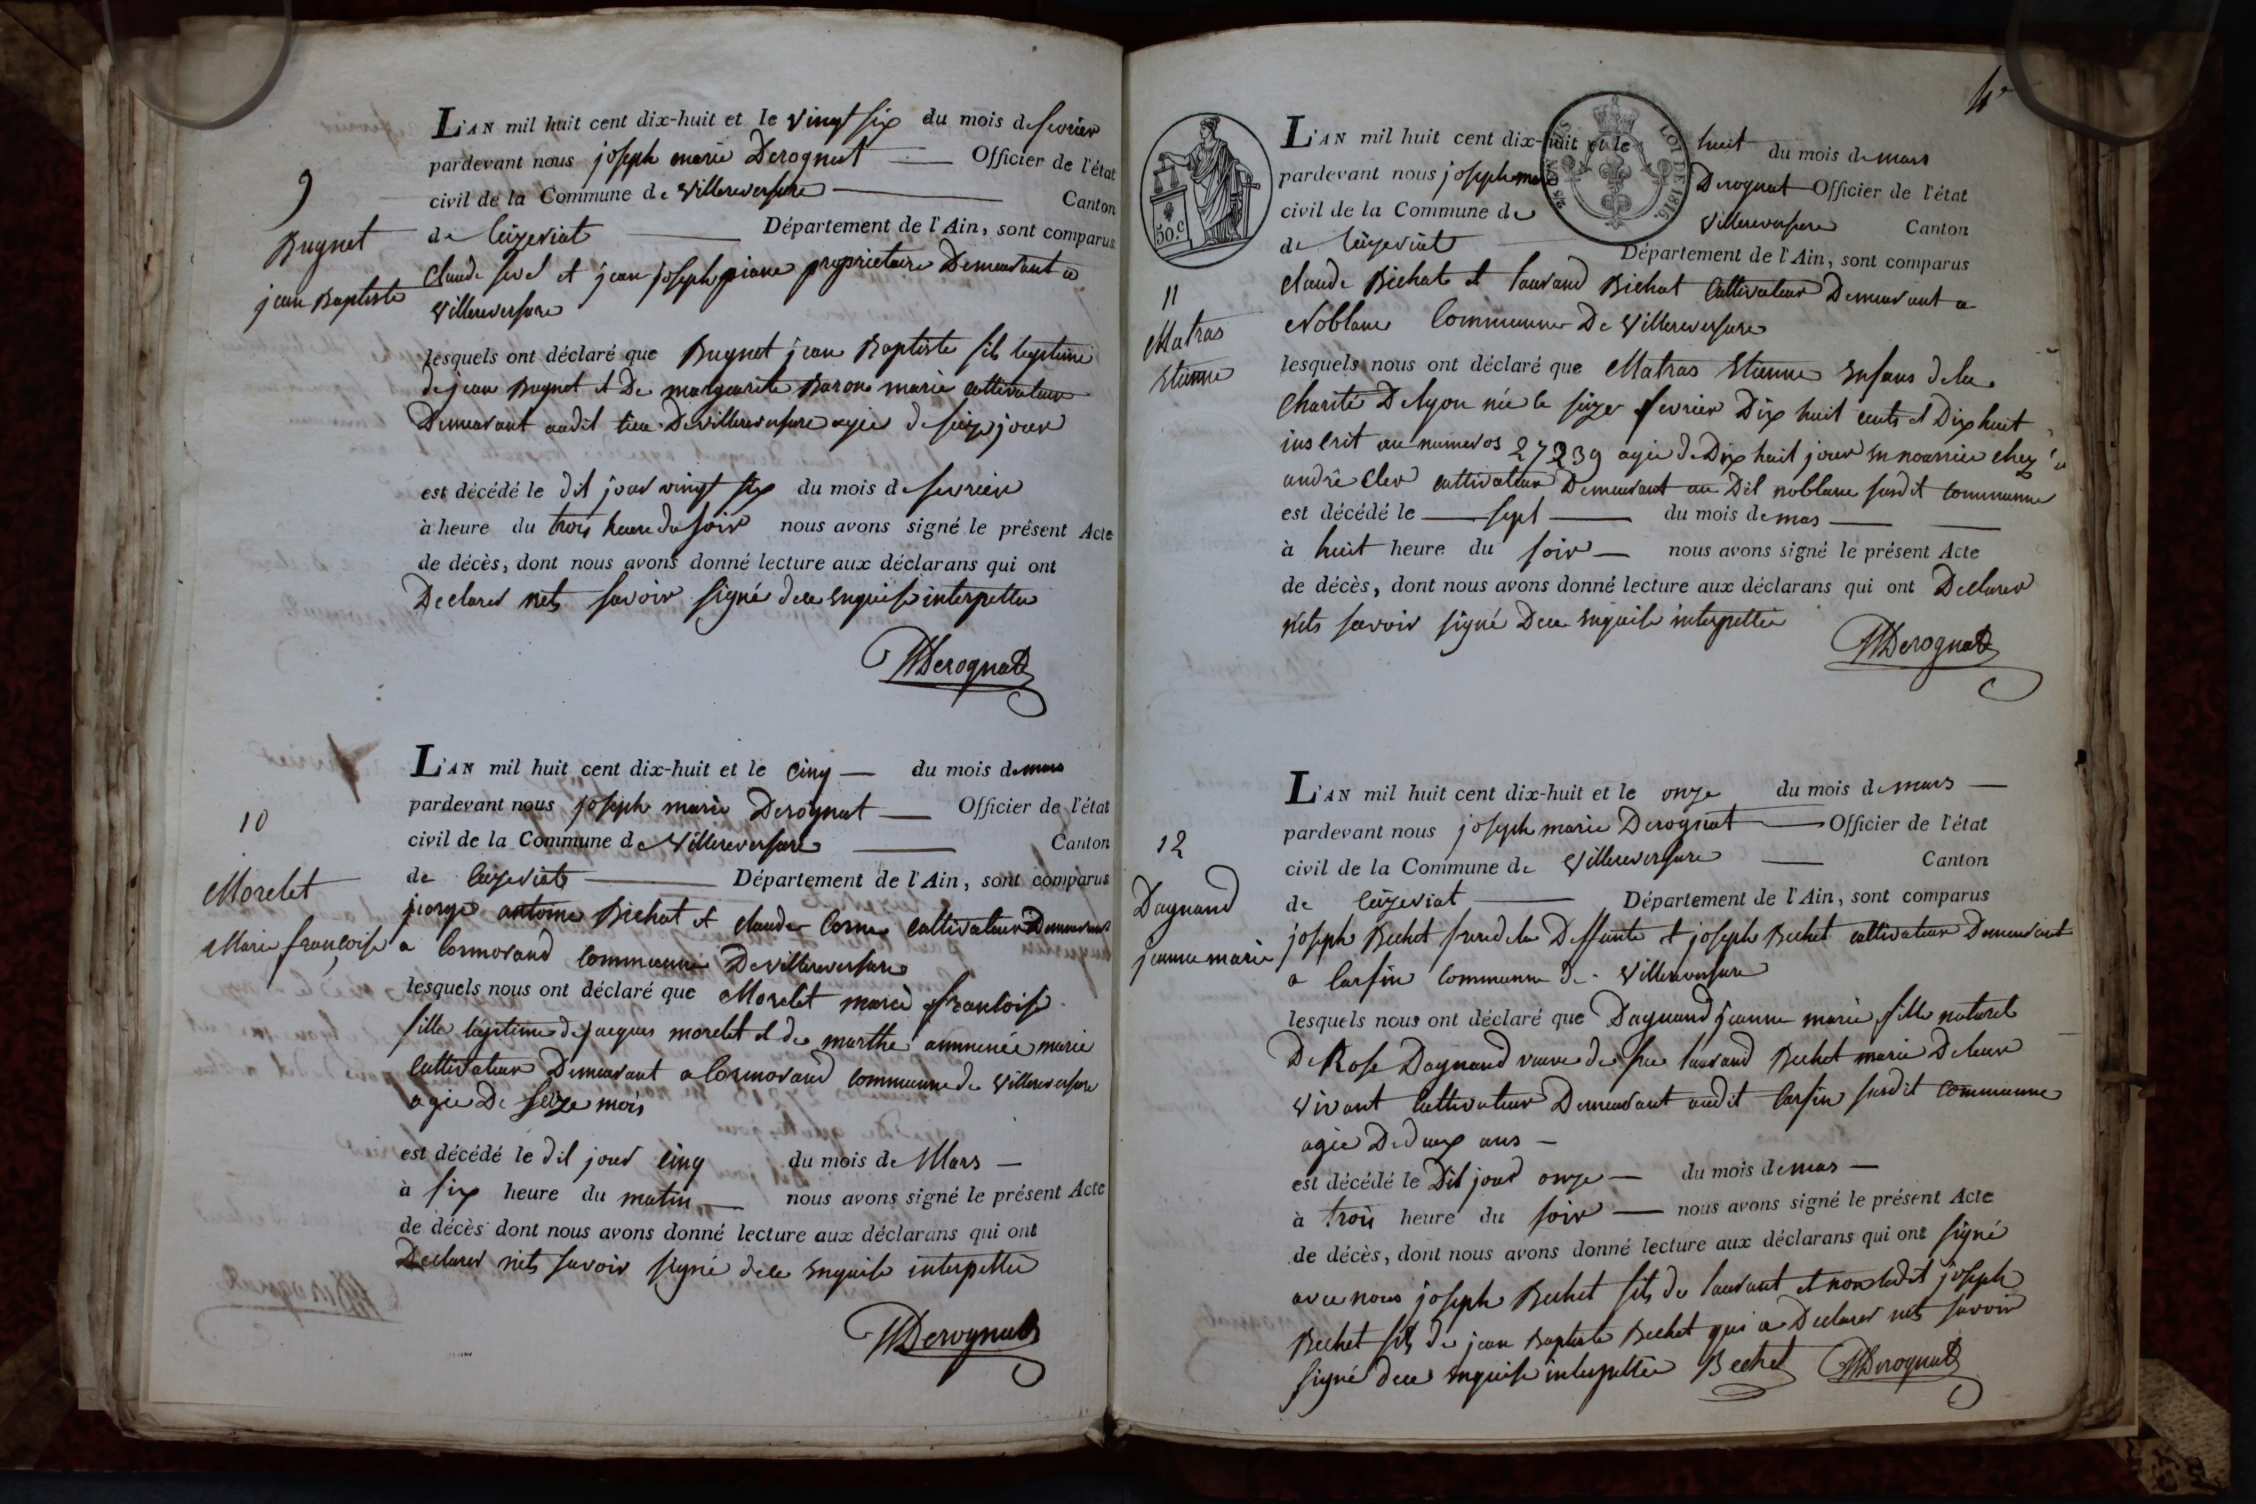 9
Bugnet
jean Baptiste
L'AN mil huit cent dix-huit et le vingt six du mois de fevrier
pardevant nous joseph marie Derognat Officier de l'état
civil de la Commune de Villereversure Canton
de Ceizeriat Département de l'Ain, sont comparus
Claude et jean joseph piane proprietaire Demeurant a
Villereversure
lesquels ont déclaré que Bugnet jean Baptiste fils legitime
de jean Bugnet et De marguerite Baron marié cultivateur
Demeurant audit lieu De villereversure agée de seize jour
est décédé le dit jour vingt six du mois de fevrier
à heure du trois heure du soir nous avons signé le présent Acte
de décès, dont nous avons donné lecture aux déclarans qui ont
Declarer nets savoir signé de ce enquise interpettée
Derognat
10
Morelet
Marie françoise
L'AN mil huit cent dix-huit et le cinq du mois de mars
pardevant nous joseph marie Derognat Officier de l'état
civil de la Commune de Villereversure Canton
de Ceizeriat Département de l'Ain, sont comparus
jiorge antoine Bichat et claude Corne cultivateur Demeurant
a Cormorand commune De villereversure
lesquels nous ont déclaré que Morelet marie francoise
fille legitime de jacques morelet et de marthe ammenée marié
Cultivateur Demeurant a Cormorand commune de Villereversure
agée De seize mois
est décédé le dit jour cinq du mois de Mars
à six heure du matin nous avons signé le présent Acte
de décès dont nous avons donné lecture aux déclarans qui ont
Declarer nets savoir signé de ce enquise interpettée
Derognat
4e
50.c
LOI DE 1816.
11
Matras
Etienne
L'AN mil huit cent dix-huit et le huit du mois de mars
pardevant nous joseph marie Derognat Officier de l'état
civil de la Commune de Villereversure Canton
de Ceizeriat Département de l'Ain, sont comparus
Claude Bichat et laurand Bichat Cultivateur Demeurant a
Noblane Commune De Villereversure
lesquels nous ont déclaré que Matras Etienne Enfans de la
Charité De lyon née le seize fevrier Dix huit cents et Dix huit
inscrit au numeros 27239 agée de Dix huit jour en nourrice chez
andré Cler cultivateur Demeurant au Dit noblane susdit commune
est décédé le sept du mois de mas
à huit heure du soir nous avons signé le présent Acte
de décès, dont nous avons donné lecture aux déclarans qui ont Declarer
nets savoir signé De ce enquise interpettée
Derognat
12
Dagnand
jeanne marie
L'AN mil huit cent dix-huit et le onze du mois de mars
pardevant nous joseph marie Derognat Officier de l'état
civil de la Commune de Villereversure Canton
de Ceizeriat Département de l'Ain, sont comparus
joseph Bechet frere de la Deffunte et joseph Bechet cultivateur Demeurant
a Carfin commune de Villereversure
lesquels nous ont déclaré que Dagnand jeanne marie fille naturel
De Rose Dagnand veuve de feu laurand Bechet marié De leur
vivant Cultivateur Demeurant audit Carfin susdit commune
agée De deux ans
est décédé le Dit jour onze du mois de mas
à trois heure du soir nous avons signé le présent Acte
de décès, dont nous avons donné lecture aux déclarans qui ont signé
avec nous joseph Bechet fils de laurant et non ledit joseph
Bechet fils de jean Baptiste Bechet qui a Declarer nets savoir
signé de ce enquise interpettée Bechet Derognat